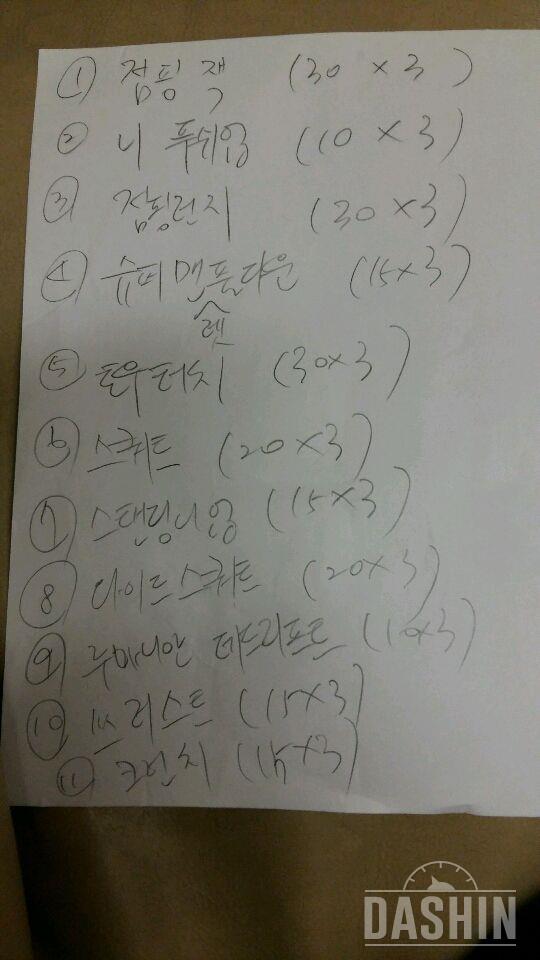 ① 점핑 잭 (30 × 3)
② 니 푸쉬업 (10 × 3)
③ 점핑런지 (30 × 3)
④ 슈퍼맨풀다운 (15×3)
렛
⑤ 토우터치 (30×3)
⑥ 스쿼트 (20×3)
⑦ 스탠딩니업 (15×3)
⑧ 와이드스쿼트 (20×3)
⑨ 루마니안 데드리프트 (10×3)
⑩ 리스트 (15×3)
⑪ 크런치 (15×3)
DASHIN